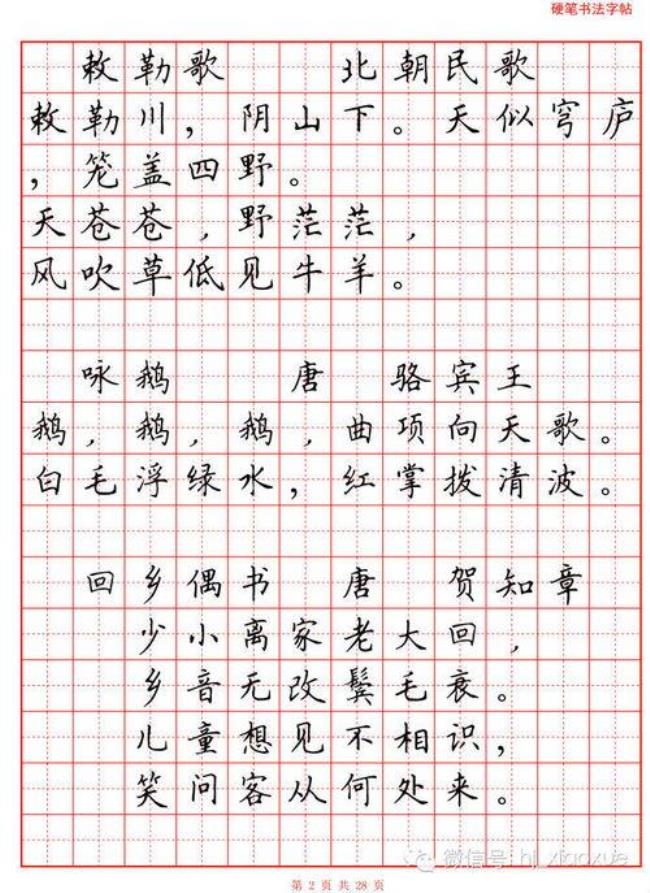 硬笔书法字帖
敕勒歌 北朝民歌
敕勒川，阴山下。天似穹庐
，笼盖四野。
天苍苍，野茫茫，
风吹草低见牛羊。
咏鹅 唐 骆宾王
鹅，鹅，鹅，曲项向天歌。
白毛浮绿水，红掌拨清波。
回乡偶书 唐 贺知章
少小离家老大回，
乡音无改鬓毛衰。
儿童想见不相识，
笑问客从何处来。
微信号: hl_xiaoxue
第 2 页 共 28 页